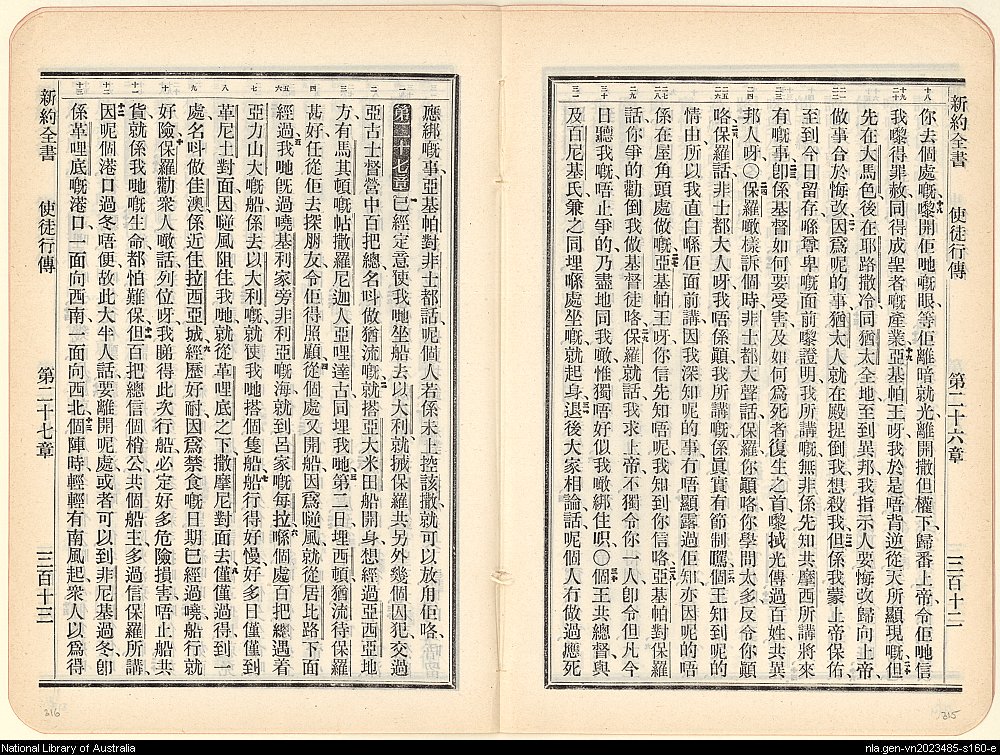 新約全書 使徒行傳 第二十六章 三百十二
十八 十九 二十 二一 二二 二三 二四 二五 二六 二七 二八 二九 三十 三一
你去個處嘅嚟開佢哋嘅眼等佢離暗就光離開撒但權下歸番上帝令佢哋信
我嚟得罪赦同得成聖者嘅產業亞基帕王呀我於是唔背逆從天所顯現嘅但
先在大馬色後在耶路撒冷同猶太全地至到異邦我指示人要悔改歸向上帝
做事合於悔改因爲呢的事猶太人就在殿捉倒我想殺我但係我蒙上帝保佑
至到今日留存喺尊卑嘅面前嚟證明我所講嘅無非係先知共摩西所講將來
有嘅事卽係基督如何要受害及如何爲死者復生之首嚟㧕光傳過百姓共異
邦人呀○保羅噉樣訴個時非士都大聲話保羅你顚咯你學問太多反令你顚
咯保羅話非士都大人呀我唔係顚我所講嘅係眞實有節制嘅個王知到呢的
情由所以我直白喺佢面前講因我深知呢的事冇唔顯露過佢知亦因呢的唔
係在屋角頭處做嘅亞基帕王呀你信先知唔呢我知到你信咯亞基帕對保羅
話你爭的勸到我做基督徒咯保羅就話我求上帝不獨令你一人卽令但凡今
日聽我嘅唔止爭的乃盡地同我噉惟獨唔好似我噉綁住呮○個王共總督與
及百尼基氏兼之同埋喺處坐嘅就起身退後大家相論話呢個人冇做過應死
應綁嘅事亞基帕對非士都話呢個人若係未上控該撒就可以放用佢咯
第二十七章已經定意使我哋坐船去以大利就搣保羅共另外幾個囚犯交過
亞古士督營中百把總名呌做猶流嘅就搭亞大米田船開身想經過亞西亞地
方有馬其頓嘅帖撒羅尼迦人亞哩達古同埋我哋第二日埋西頓猶流待保羅
甚好任從佢去探朋友令佢得照顧從個處又開船因爲𨂾風就從居比路下面
經過我哋旣過曉基利家旁非利亞嘅海就到呂家嘅每拉喺個處百把總遇着
亞力山大嘅船係去以大利嘅就使我哋搭個隻船船行得好慢好多日僅僅到
革尼土對面因𨂾風阻住我哋就從革哩底之下撒摩尼對面去僅僅過得到一
處名呌做佳澳係近住拉西亞城經歷好耐因爲禁食嘅日期已經過曉船行就
好險保羅勸衆人噉話列位呀我睇得此次行船必定好多危險損害唔止船共
貨就係我哋嘅生命都怕難保但百把總信個梢公共個船主多過信保羅所講
因呢個港口過冬唔便故此大半人話要離開呢處或者可以到非尼基過冬卽
係革哩底嘅港口一面向西南一面向西北個陣時輕輕有南風起衆人以爲得
一 二 三 四 五六 七 八 九 十 十一 十二 十三
新約全書 使徒行傳 第二十七章 三百十三
316
315
National Library of Australia
nla.gen-vn2023485-s160-e